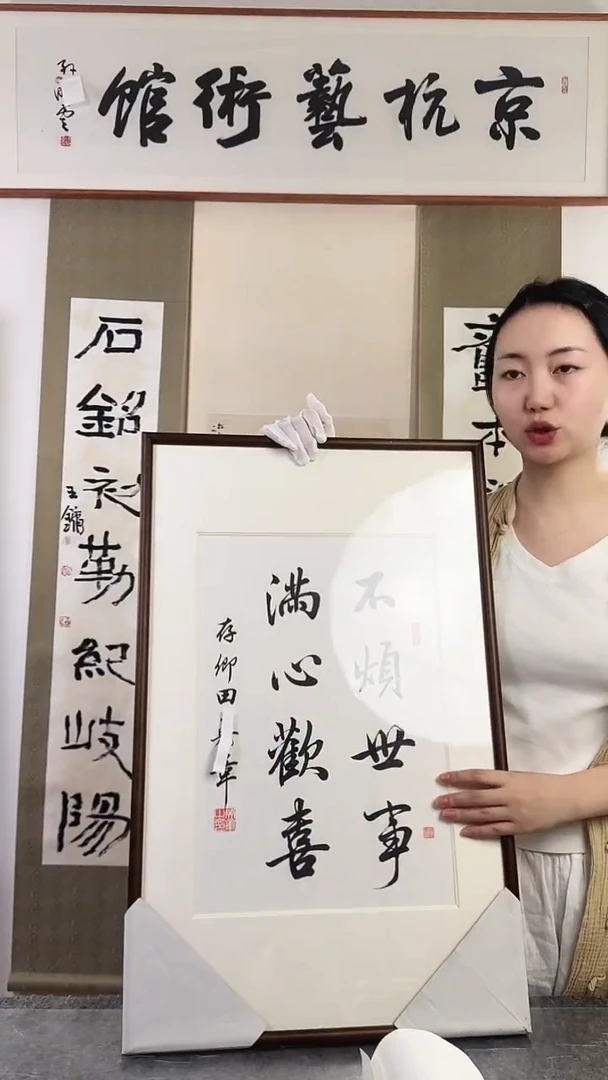 京杭藝術館
不煩世事
滿心歡喜
存卿田
石銘初勒紀岐陽
王鏞
本